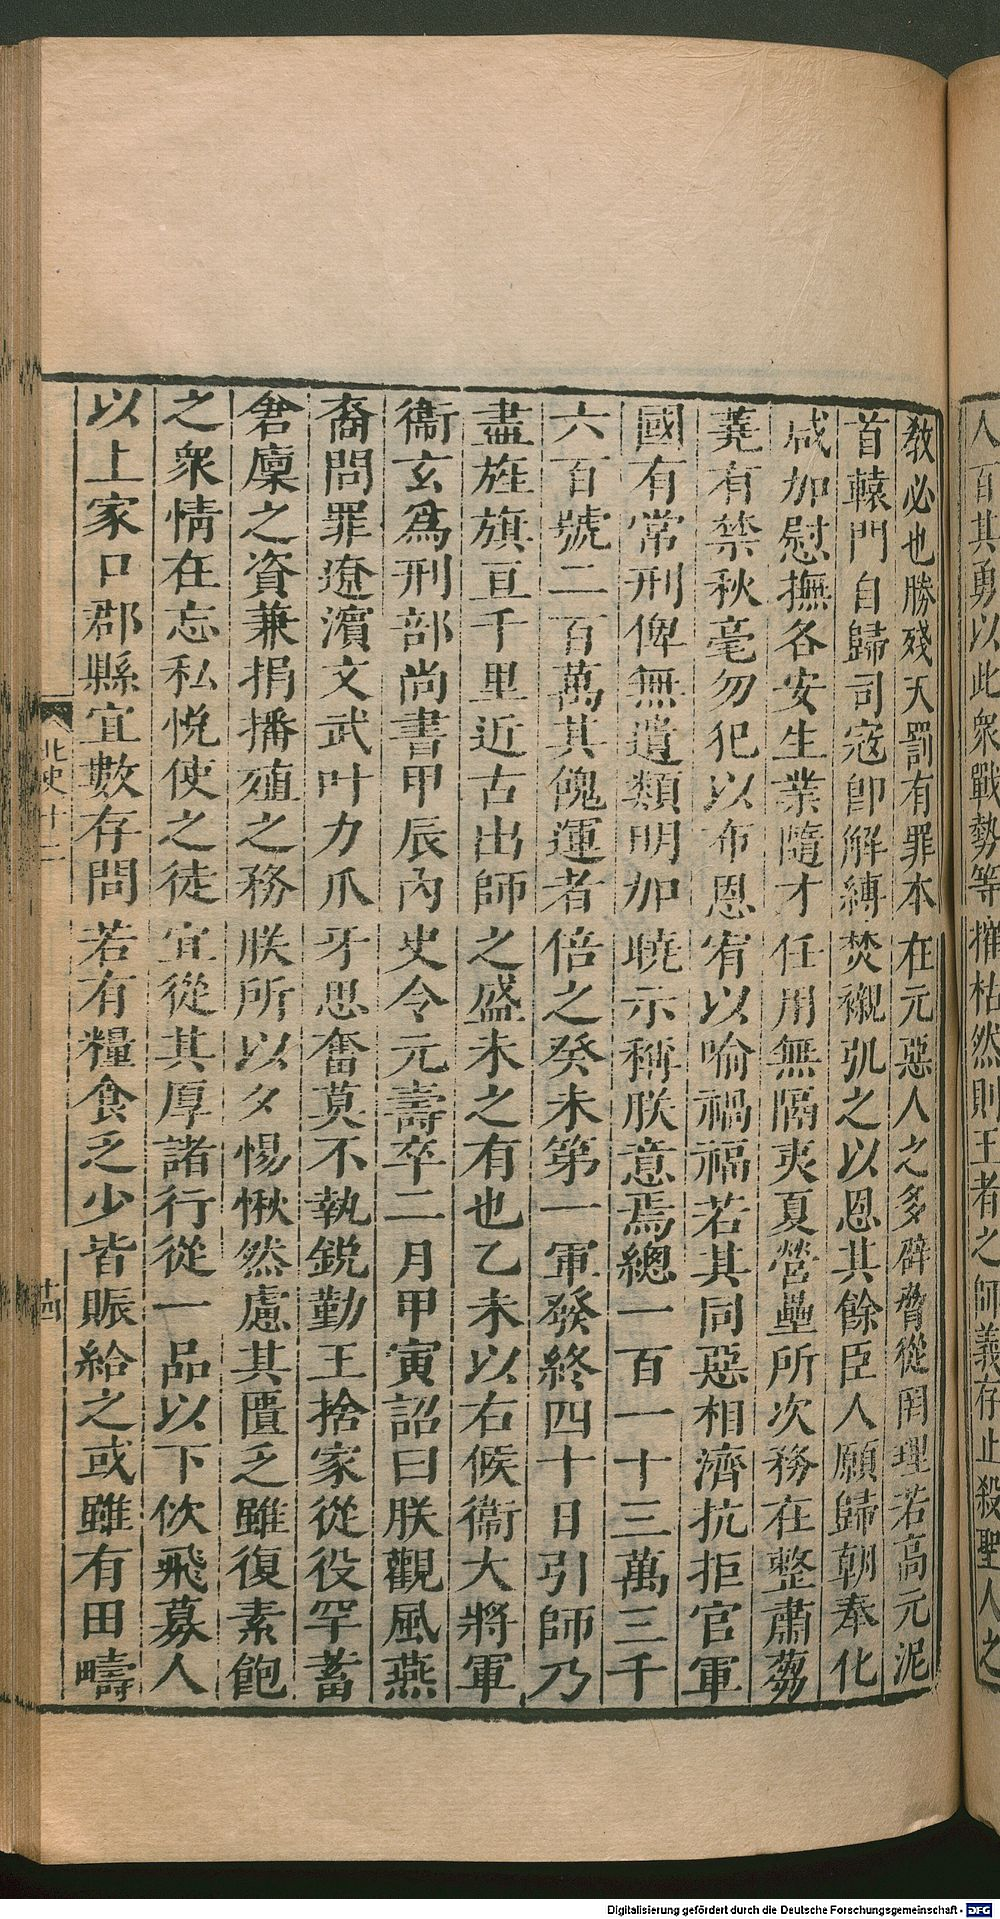 人百其勇以此衆戰勢等摧枯然則王者之師義存止殺聖人之
敎必也勝殘天罰有罪本在元惡人之多辟脅從罔理若高元泥
首轅門自歸司寇卽解縛焚櫬弘之以恩其餘臣人願歸朝奉化
咸加慰撫各安生業隨才任用無隔夷夏營壘所次務在整肅芻
蕘有禁秋毫勿犯以布恩宥以喻禍福若其同惡相濟抗拒官軍
國有常刑俾無遺類明加曉示稱朕意焉總一百一十三萬三千
六百號二百萬其餽運者倍之癸未第一軍發終四十日引師乃
盡旌旗亘千里近古出師之盛未之有也乙未以右候衞大將軍
衞玄爲刑部尚書甲辰內史令元壽卒二月甲寅詔曰朕觀風燕
裔問罪遼濱文武叶力爪牙思奮莫不執銳勤王捨家從役罕蓄
倉廩之資兼捐播殖之務朕所以夕惕愀然慮其匱乏雖復素飽
之衆情在忘私悅使之徒宜從其厚諸行從一品以下佽飛募人
以上家口郡縣宜數存問若有糧食乏少皆賑給之或雖有田疇
北史十二
十四
Digitalisierung gefördert durch die Deutsche Forschungsgemeinschaft - DFG